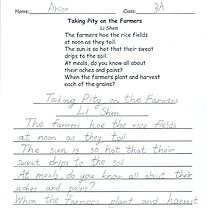 Name: Alison Class: 3A
Taking Pity on the Farmers
Li Shen
The farmers hoe the rice fields
at noon as they toil.
The sun is so hot that their sweat
drips to the soil.
At meals, do you know all about
their aches and pains?
When the farmers plant and harvest
each of the grains?
Taking Pity on the Farmers
Li Shen
The farmers hoe the rice fields
at noon as they toil
The sun is so hot that their
sweat drips to the soil
At meals, do you know all about their
aches and pains?
When the farmers plant and harvest